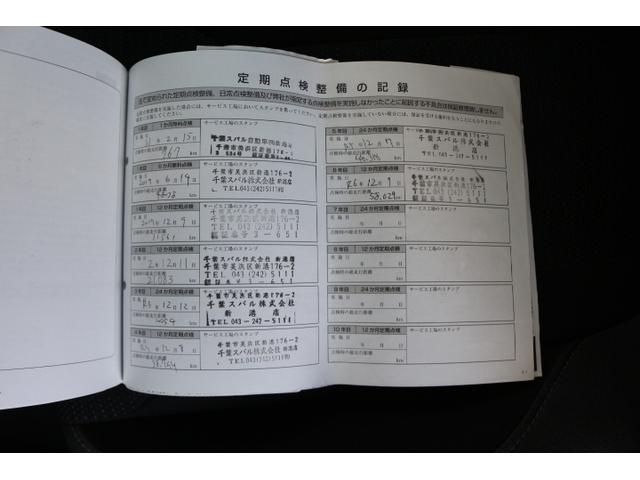 定期点検整備の記録
法で定められた定期点検整備、日常点検整備及び弊社が指定する点検整備を実施しなかったことに起因する不具合は保証修理致しません。
1年目 1か月無料点検
サービス工場のスタンプ
実施日
31年2月15日
点検時の総走行距離
km
サービス工場のスタンプ
千葉市美浜区新港176-2
千葉スバル株式会社 新港店
TEL.043(242)5111㈹
実施日
2019年6月14日
点検時の総走行距離
km
1年目 12か月定期点検
サービス工場のスタンプ
千葉スバル株式会社 新港店
千葉市美浜区新港176-2
TEL 043 (242) 5111
認証番号 3-651
実施日
2019年12月9日
点検時の総走行距離
11561 km
2年目 12か月定期点検
サービス工場のスタンプ
千葉スバル株式会社 新港店
千葉市美浜区新港176-2
TEL 043 (242) 5111
認証番号 3-651
実施日
2年12月11日
点検時の総走行距離
21083 km
3年目 24か月定期点検
サービス工場のスタンプ
千葉市美浜区新港176-2
千葉スバル株式会社
新港店
TEL 043-242-5111
実施日
R3年12月12日
点検時の総走行距離
km
4年目 12か月定期点検
サービス工場のスタンプ
千葉市美浜区新港176-2
千葉スバル株式会社 新港店
TEL.043(242)5111㈹
実施日
R4年12月8日
点検時の総走行距離
km
5年目 24か月定期点検
千葉スバル株式会社
新港店
実施日
年12月9日
点検時の総走行距離
km
6年目 12か月定期点検
サービス工場のスタンプ
千葉市美浜区新港176-2
千葉スバル株式会社 新港店
実施日
R6年12月9日
点検時の総走行距離
58,029 km
7年目 24か月定期点検
サービス工場のスタンプ
実施日
年 月 日
点検時の総走行距離
km
8年目 12か月定期点検
サービス工場のスタンプ
実施日
年 月 日
点検時の総走行距離
km
9年目 24か月定期点検
サービス工場のスタンプ
実施日
年 月 日
点検時の総走行距離
km
10年目 12か月定期点検
サービス工場のスタンプ
実施日
年 月 日
点検時の総走行距離
km